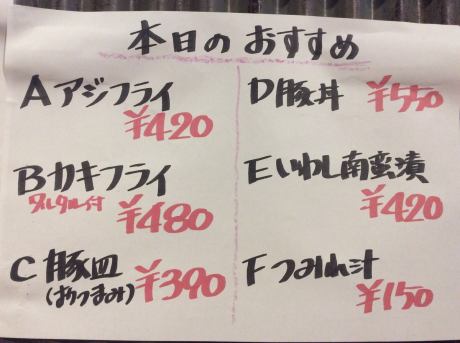 本日のおすすめ
A アジフライ
¥420
B カキフライ
タルタル付
¥480
C 豚皿
(おつまみ)
¥390
D 豚丼 ¥550
E いわし南蛮漬
¥420
F つみれ汁
¥150